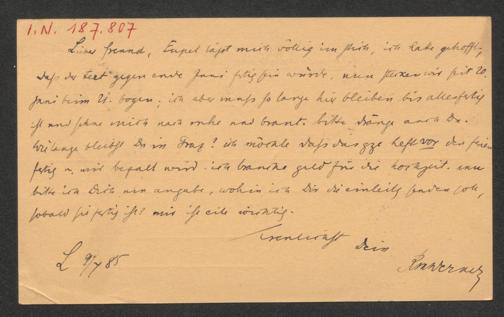 I.N. 187.807
Lieber Freund, Tempel lässt mich völlig im stich, ich hatte gehofft,
dass der text gegen ende Juni fertig sein würde, nun stecken wir seit 20.
Juni beim 21. bogen; ich aber muss so lange hier bleiben bis alles fertig
ist und sehne mich nach ruhe und braut. bitte dränge auch Du.
Wie lange bleibst Du in Prag? ich möchte dass das ggze heft vor den ferien
fertig u. mir bezalt wird. ich brauche geld für die hochzeit. nun
bitte ich Dich um angabe, wohin ich Dir die einleitg senden soll,
sobald sie fertig ist? mir ist eile wichtig.
Dein
L 9/7 85
RMWerner